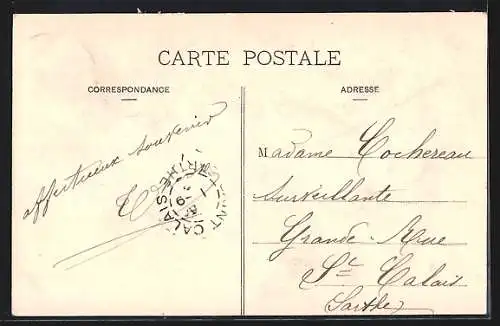 CARTE POSTALE
CORRESPONDANCE
affectueux souvenir
ADRESSE
Madame Cochereau
Surveillante
Grande-Rue
St Calais
Sarthe
SAINT CALAIS
SARTHE